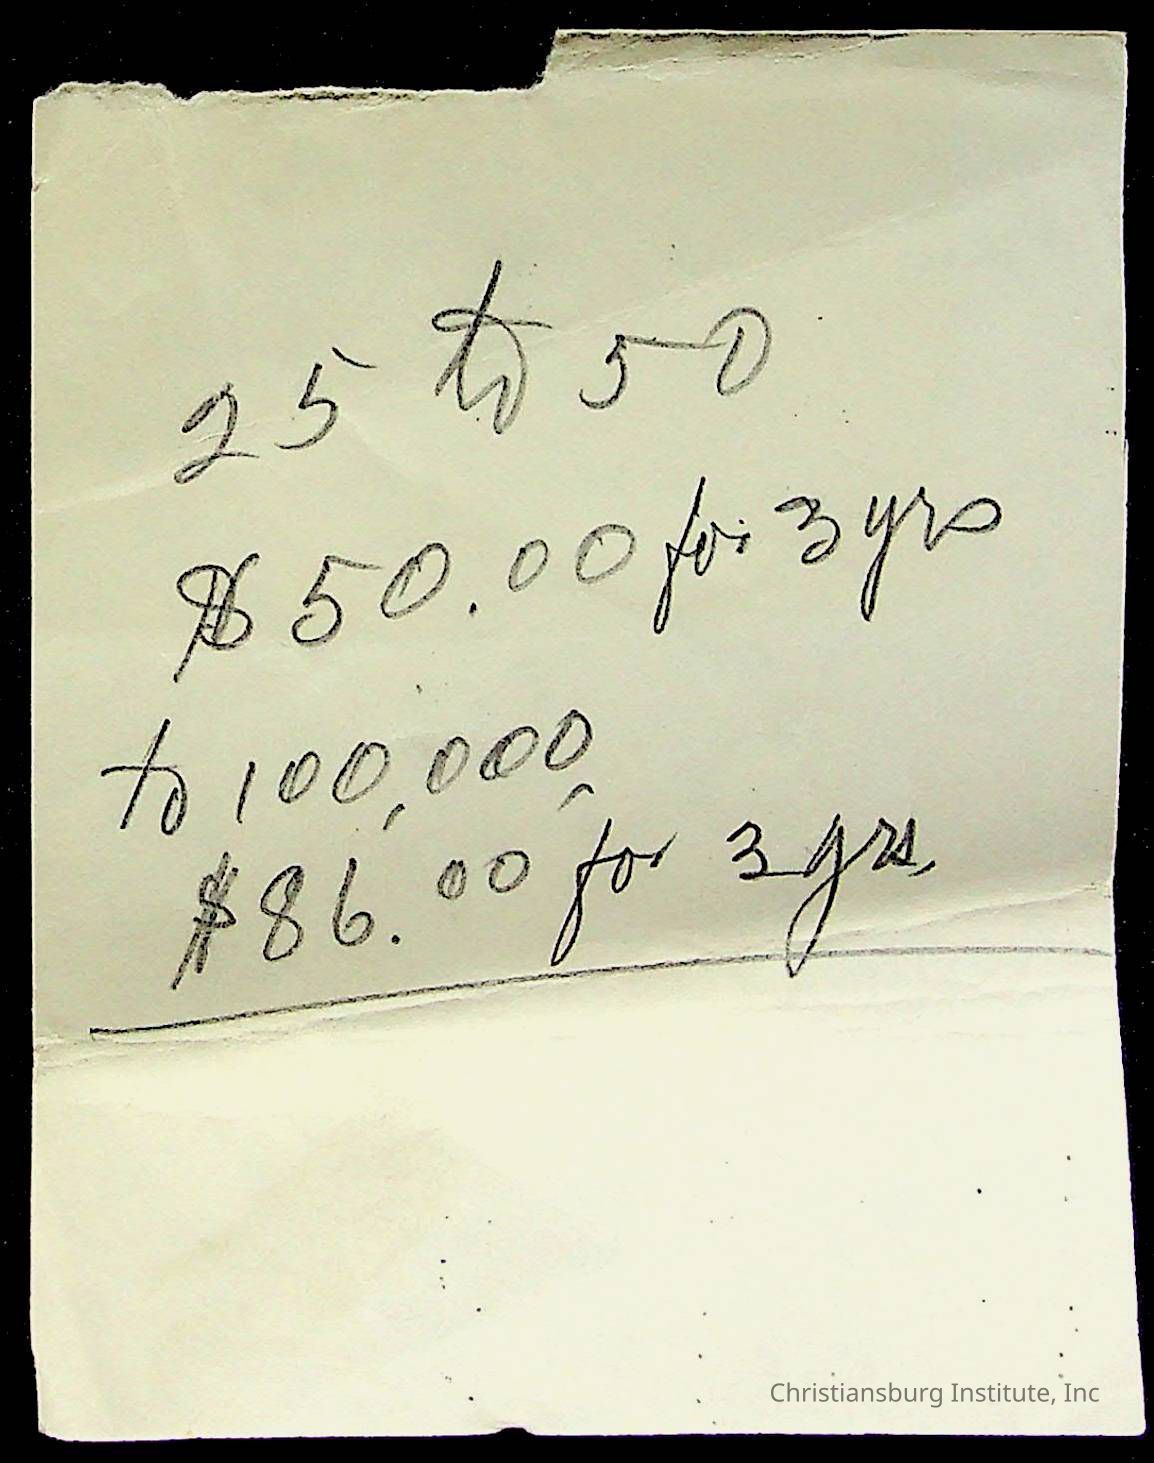 25 to 50
$50.00 for 3 yrs
to 100,000
$86.00 for 3 yrs.
Christiansburg Institute, Inc